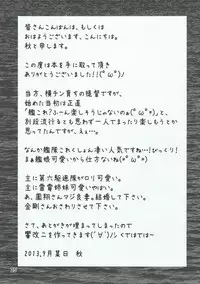 皆さんこんばんは、もしくは
おはようございます、こんにちは。
秋と申します。
この度は本を手に取って頂き
ありがとうございました!!(*´ω`*)ノ
当方、横チン育ちの提督ですが、
始めた当初は正直
「艦これ?ふーん楽しそうじゃないのぉ(*´ω`*)」と、
別段流行るとも思わず一人でまったり楽しもうとか
思ってたんですが、えぇ…。
なんか艦隊これくしょん凄い人気ですね…!びっくり!
まぁ艦娘可愛いから仕方ないね(*´ω`*)
主に第六駆逐隊がロリ可愛い。
主に雷電姉妹可愛いやばい。
あ、鳳翔さんマジ良妻。結婚して下さい。
金剛さんおさわりさせて下さい。
さて、あとがきが埋まってしまったので
響改二を作ってきます(´∀`)ノシ くではでは~
2013,9月某日 秋